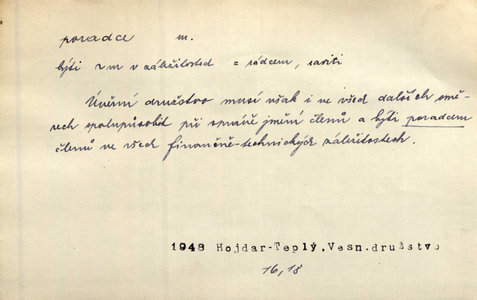 poradce m.
býti r m v záležitostech = rádcem, raditi
Úvěrní družstvo musí však i ve všech dalších smě-
rech spolupůsobit při správě jmění členů a býti poradcem
členů ve všech finančně-technických záležitostech.
1948 Hojdar-Teplý, Vesn. družstvo
16, 18